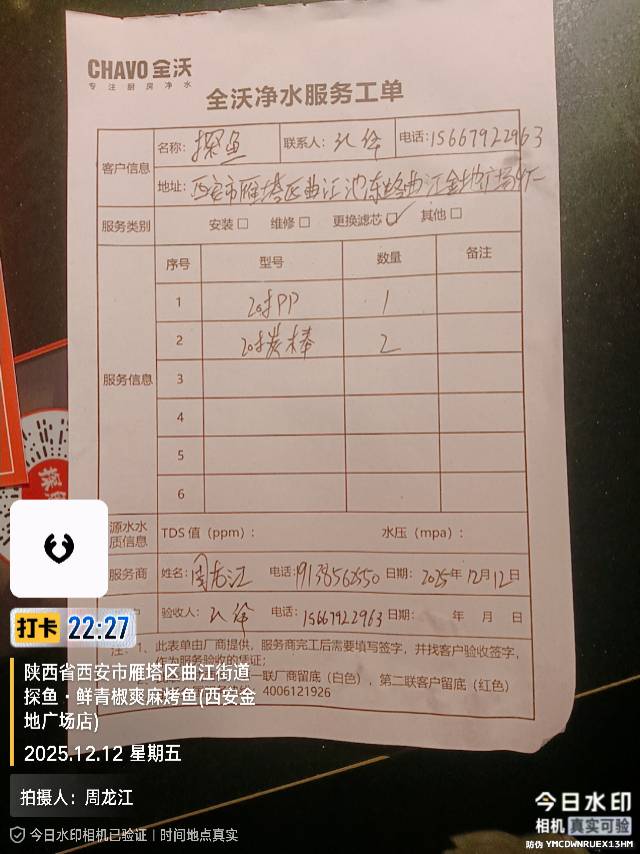 CHAVO 全沃
专注厨房净水
全沃净水服务工单
客户信息 名称: 探鱼 联系人: 电话: 15667922963
地址: 西安市雁塔区曲江池东路曲江金地广场
服务类别 安装 维修 更换滤芯 ✓ 其他
服务信息 序号 型号 数量 备注
1 20寸PP 1
2 20寸炭棒 2
3
4
5
6
源水水质信息 TDS 值 (ppm): 水压 (mpa):
服务商 姓名: 周龙江 电话: 日期: 2025年 12月 12日
验收人: 电话: 15667922963 日期: 年 月 日
注: 1、此表单由厂商提供, 服务商完工后需要填写签字, 并找客户验收签字,
作为服务验收的凭证;
一联厂商留底 (白色), 第二联客户留底 (红色)
4006121926
打卡 22:27
陕西省西安市雁塔区曲江街道
探鱼·鲜青椒爽麻烤鱼(西安金
地广场店)
2025.12.12 星期五
拍摄人: 周龙江
今日水印相机已验证 | 时间地点真实
今日水印
相机 真实可验
防伪 YMCDWNRUEX13HM